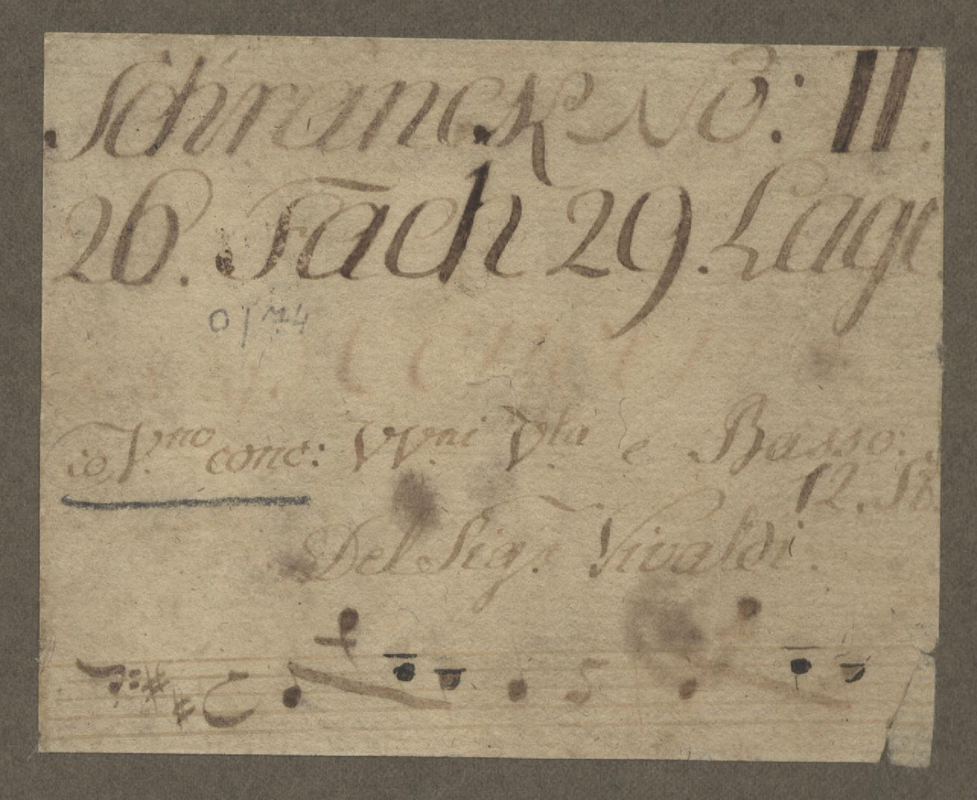 Schranck No: II.
26. Fach 29. Lage
Vno conc: VVni Vla e Basso.
12.
Del Sigr. Vivaldi.